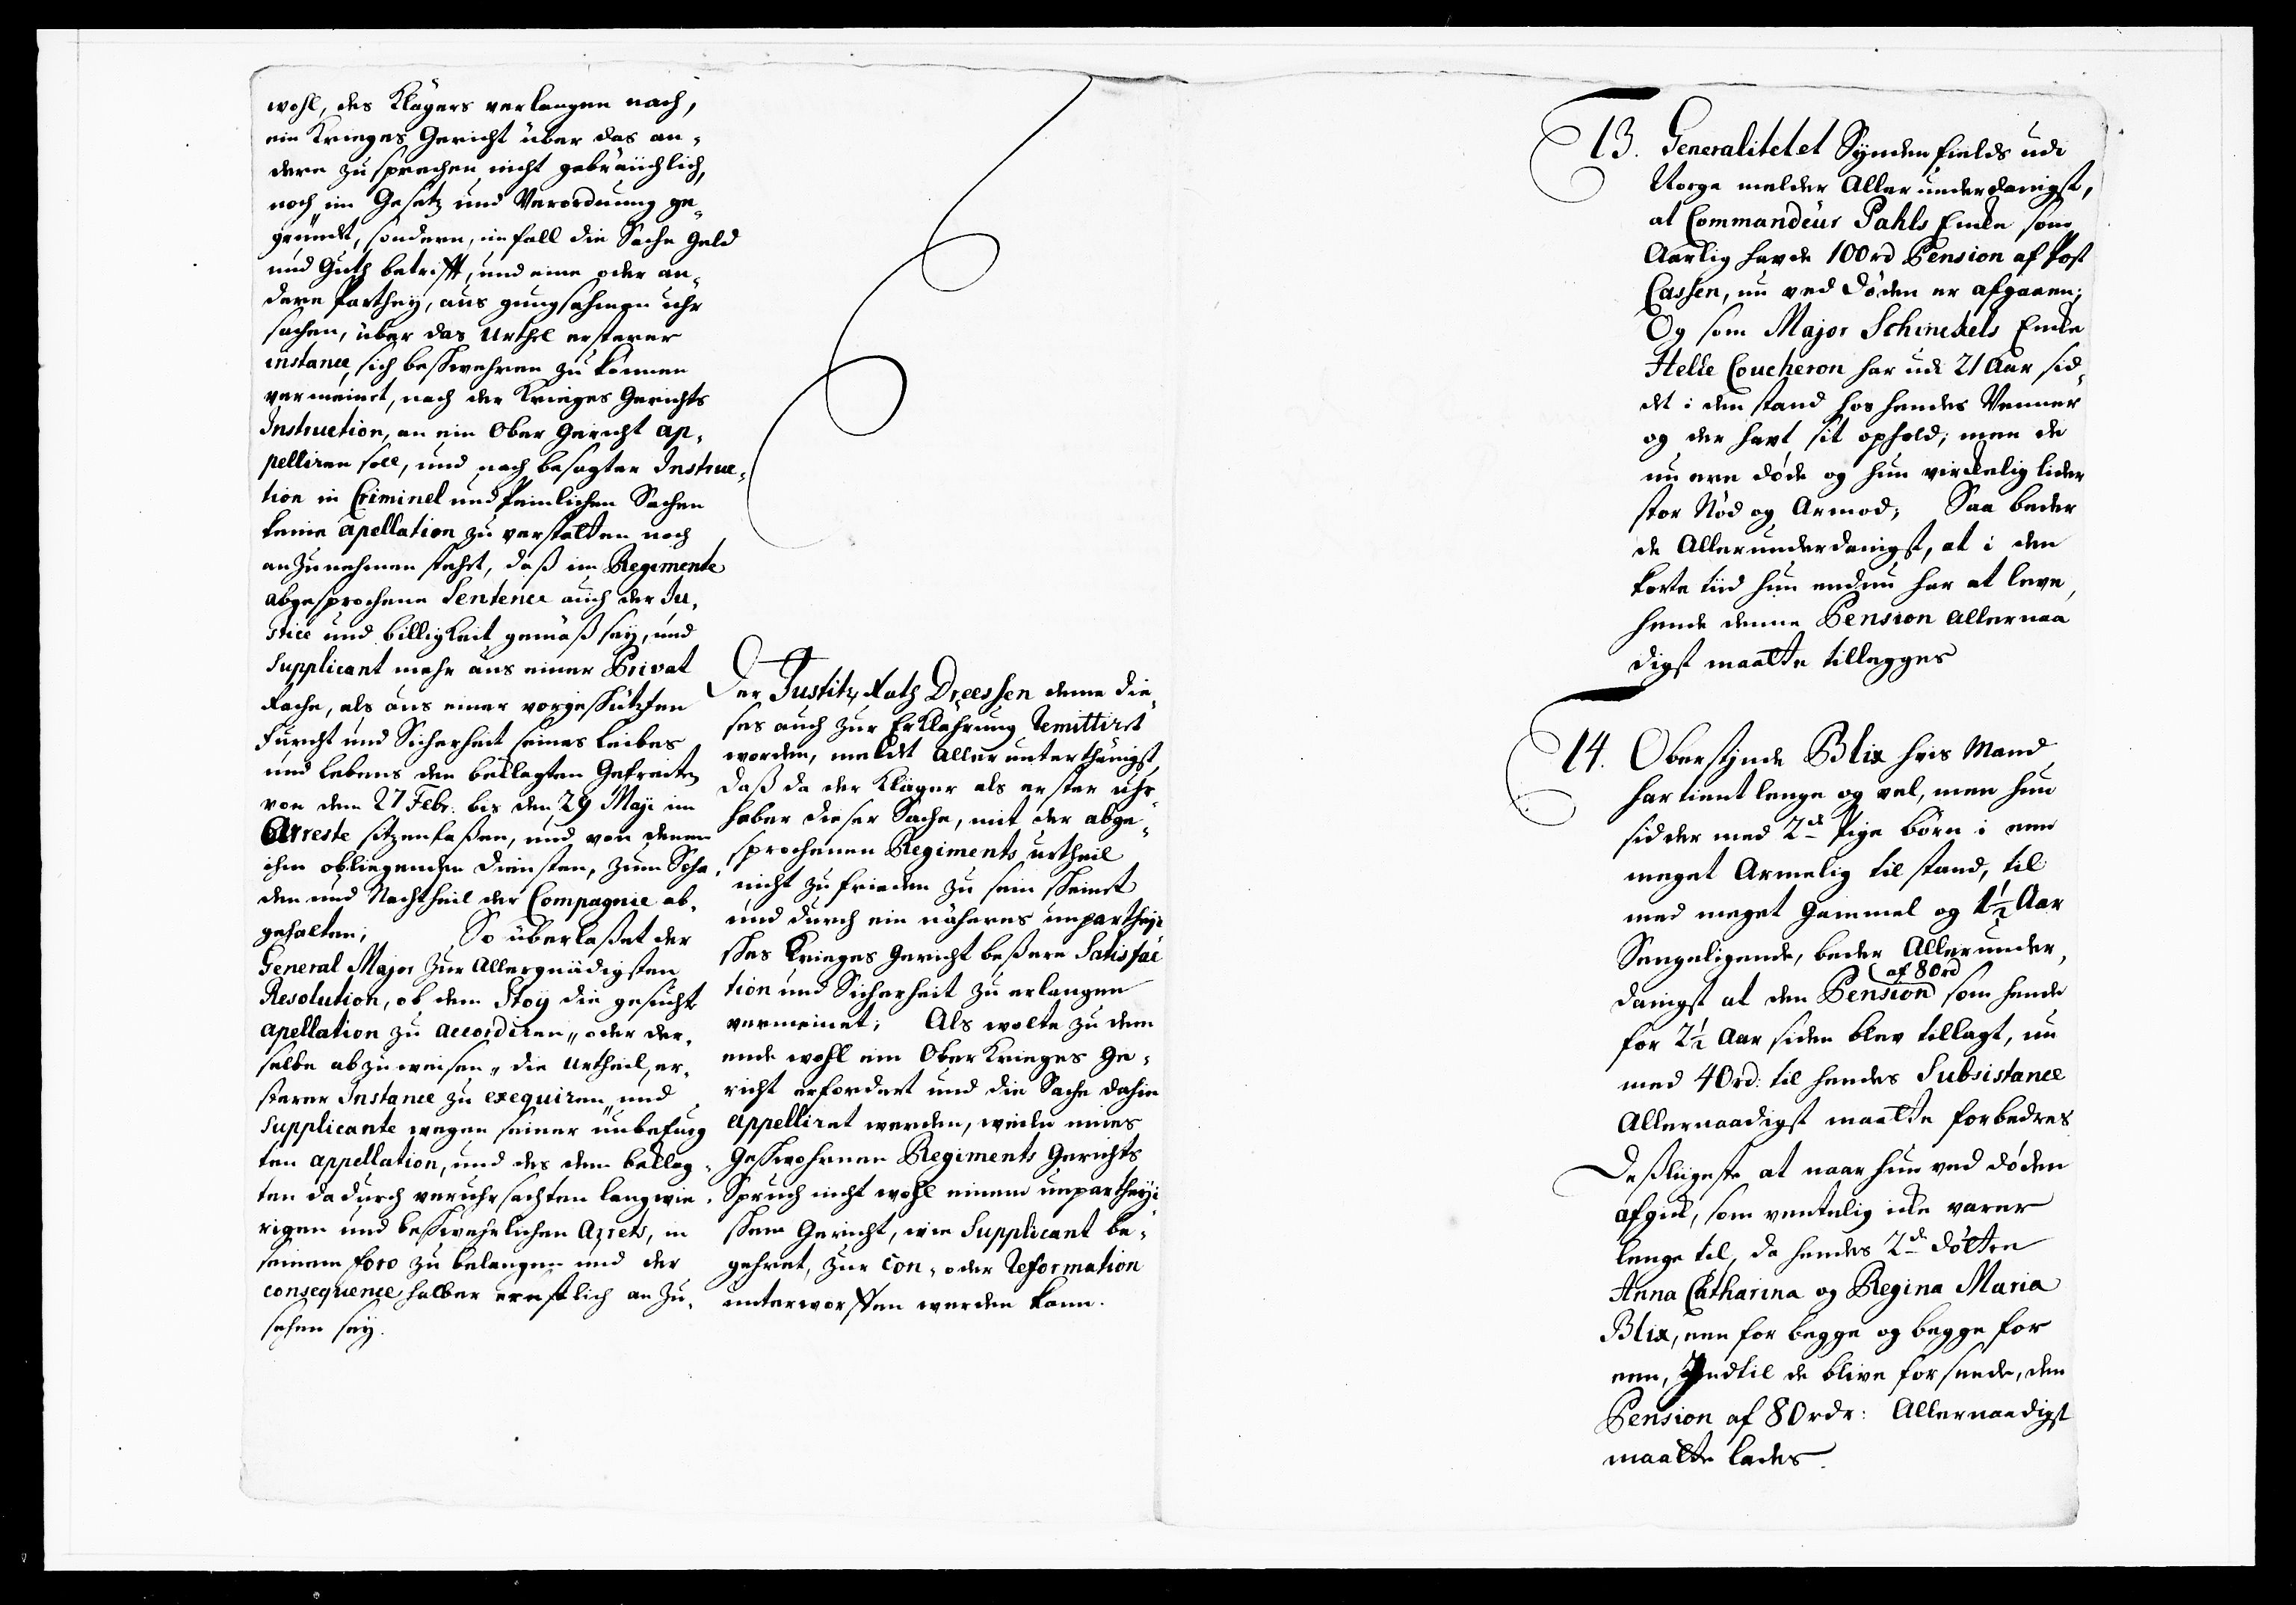 wohl, des Klägers verlangen nach,
ein Krieges Gericht über das an¬
dere zu sprechen nicht gebräuchlich,
noch im Gesetz und Verordnung ge¬
gründet, sondern, im fall die Sache Geld
und Guth betrifft, und eine oder an¬
dere Parthey, aus gungsahmen uhr
sachen, über das Urthel ersterer
instance, sich beschwehren zu können
vermeinet, nach der Krieges Gerichts
Instruction, an ein Ober Gericht ap¬
pelliren soll, und nach besagter Instruc¬
tion in Criminel und Peinlichen Sachen
keine apellation zu verstatten noch
anzunehmen stehet, daß im Regimente
abgesprochene Sentence auch der Ju¬
stice und billigkeit gemäß sey, und
Supplicant mehr aus einer Privat
Rache, als aus einer vorgeschützten
furcht und Sicherheit seines Leibes
und Lebens den beklagten Gefreiten
von dem 27 Febr. bis den 29 Maji im
Arreste sitzen laßen, und von denen
ihm obliegenden diensten, zum Scha¬
den und Nachtheil der Compagnie ab¬
gehalten; So überlaßet der
General Major zur Allergnädigsten
Resolution, ob dem Stoÿ die gesuchte
apellation zu accordiren, oder der¬
selbe abzuweisen, die Urtheil, er¬
sterer Instance zu exequiren, und
Supplicante wegen seiner unbefug
ten appellation, und des dem beklag¬
ten dadurch veruhrsachten langwie¬
rigen und beschwehrlichen Arrets, in
seinem foro zu belangen und der
consequence halber ernstlich anzu¬
sehen seÿ.
Der Justitz Rath Dreessen deme die¬
ses auch zur Erklährung remittiret
worden, meldet allerunterthänigst,
daß da der Kläger als erster uhr¬
heber dieser Sache, mit der abge¬
sprochenen Regiments urtheil
nicht zu frieden zu sein scheinet
und durch ein näheres unpartheyi
sches Krieges Gericht beßere Satisfac
tion und Sicherheit zu erlangen
vermeinet; Als wolte zu dem
ende wohl ein Ober Krieges Ge¬
richt erfordert und die Sache dahin
appelliret werden, weiln eines
Geschwohrnen Regiments Gerichts
Spruch nicht wohl einem unpartheyi
schem Gericht, wie Supplicant be¬
gehret, zur con- oder reformation
unterworffen werden kann.
13. Generalitetet Synden fields udi
Norge melder Allerunderdanigst,
at Commandeur Pahls Encke som
Aarlig havde 100rd Pension af Post
Cassen, nu ved Døden er afgaaen;
Og som Major Schinckels Encke
Helle Coucheron har udi 21 Aar sid¬
det i den stand hos hendes Venner
og der havt sit ophold; men de
nu ere døde og hun virckelig lider
stor Nød og Armod; Saa beder
de Allerunderdanigst, at i den
korte tiid hun endnu har at leve,
hende denne Pension allernaa
digst maatte tillegges
14. Oberstinde Blix hvis Mand
har tient lenge og vel, men hun
sidder med 2de Pige børn i een
meget Armelig tilstand, til
med meget gammel og 1½ Aar
Sengeligende, beder Allerunder¬
danigst at den Pension (af 80rd) som hende
for 2½ Aar siden blev tillagt, nu
med 40rd: til hendes Subsistance
Allernaadigst maatte forbedres
Desligeste at naar hun ved døden
afgik, som ventelig icke varer
lenge til, da hendes 2de døttre
Anna Catharina og Regina Maria
Blix, een for begge og begge for
een, Indtil de blive forseede, den
Pension af 80rdr: Allernaadigst
maatte lades.